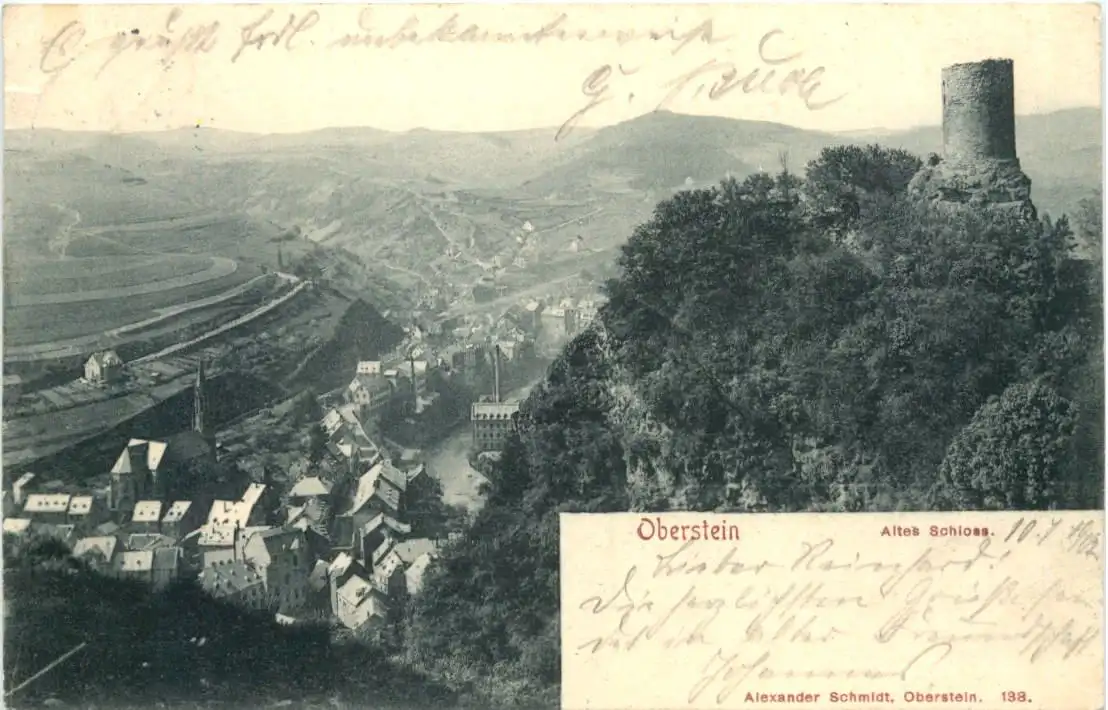 Es grüßt frdl. unbekannterweise
G. 
Oberstein
Altes Schloss.
10.7.
Lieber Reinhard!
Die herzlichsten Grüße sen
det in alter Freundschaft
Johannes
Alexander Schmidt, Oberstein. 138.